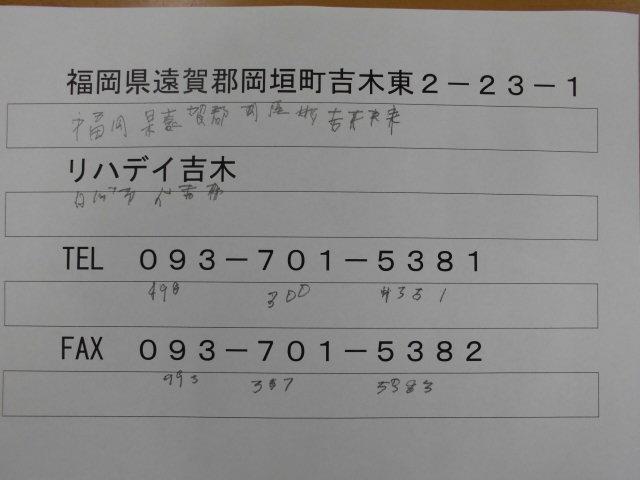 福岡県遠賀郡岡垣町吉木東２－２３－１
福岡県遠賀郡岡垣町吉木東
リハデイ吉木
TEL　０９３－７０１－５３８１
498 300 4351
FAX　０９３－７０１－５３８２
993 357 5383